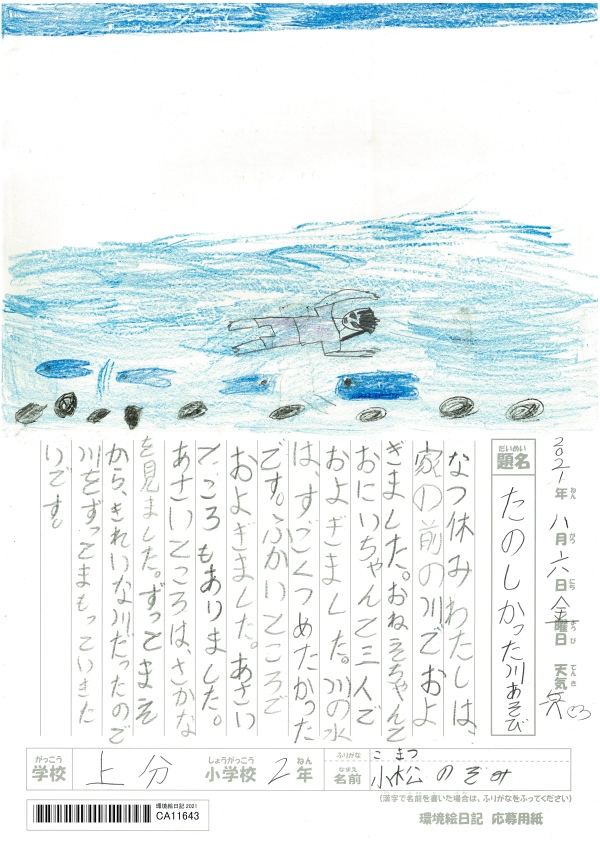 2021年八月六日金曜日 天気
ねん がつ にち ようび てんき
だいめい
題名 たのしかった川あそび
なつ休みわたしは、
家の前の川でおよ
ぎました。おねえちゃんと
おにいちゃんと三人で
およぎました。川の水
は、すごくつめたかった
です。ふかいところで
およぎました。あさい
ところもありました。
あさいところは、さかな
を見ました。ずっとまえ
から、きれいな川だったので
川をずっとまもっていきた
いです。
がっこう しょうがっこう ねん
学校 上分 小学校 2年
ふりがな こまつ
なまえ
名前 小松のぞみ
(漢字で名前を書いた場合は、ふりがなをふってください)
環境絵日記 応募用紙
環境絵日記 2021
CA11643